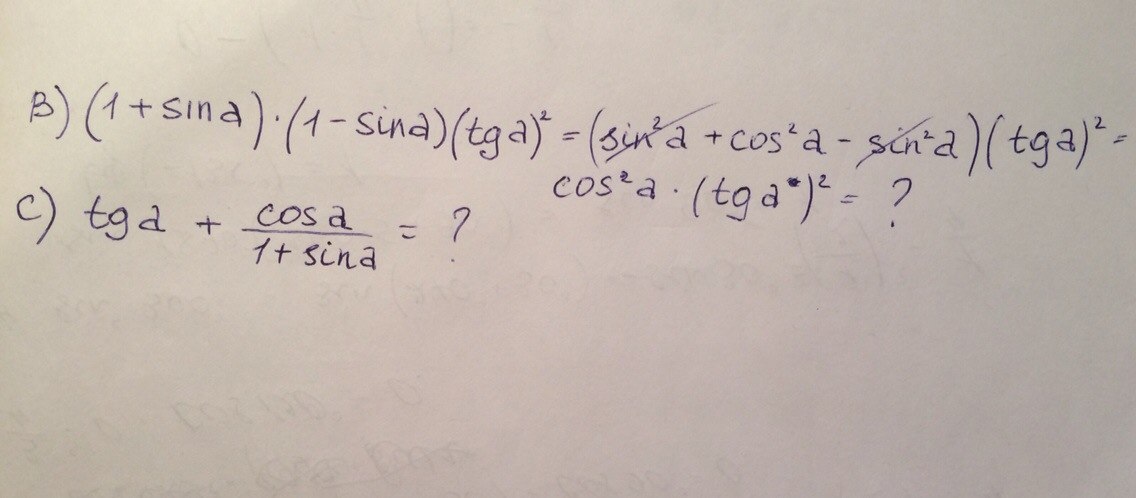 B) (1 + sin a) · (1 - sin a)(tg a)² = (sin²a + cos²a - sin²a)(tg a)² =
cos²a · (tg a)² = ?
C) tg a + cos a / 1 + sin a = ?